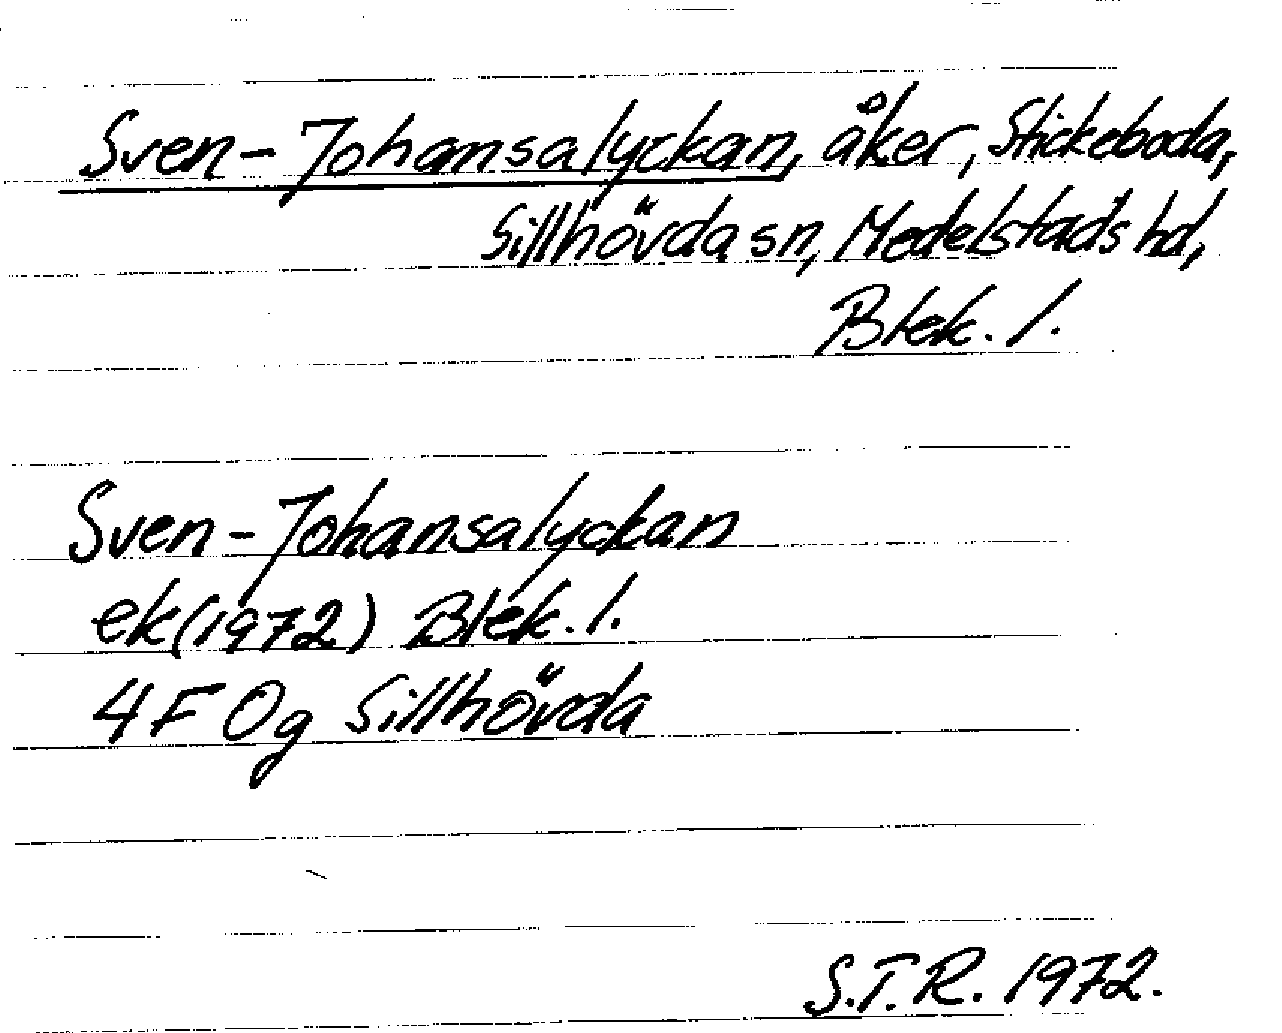 Sven-Johansalyckan, åker, Stickeboda,
Sillhövda sn, Medelstads hd,
Blek. l.
Sven-Johansalyckan
ek (1972) Blek. l.
4F Og Sillhövda
S.T.R. 1972.